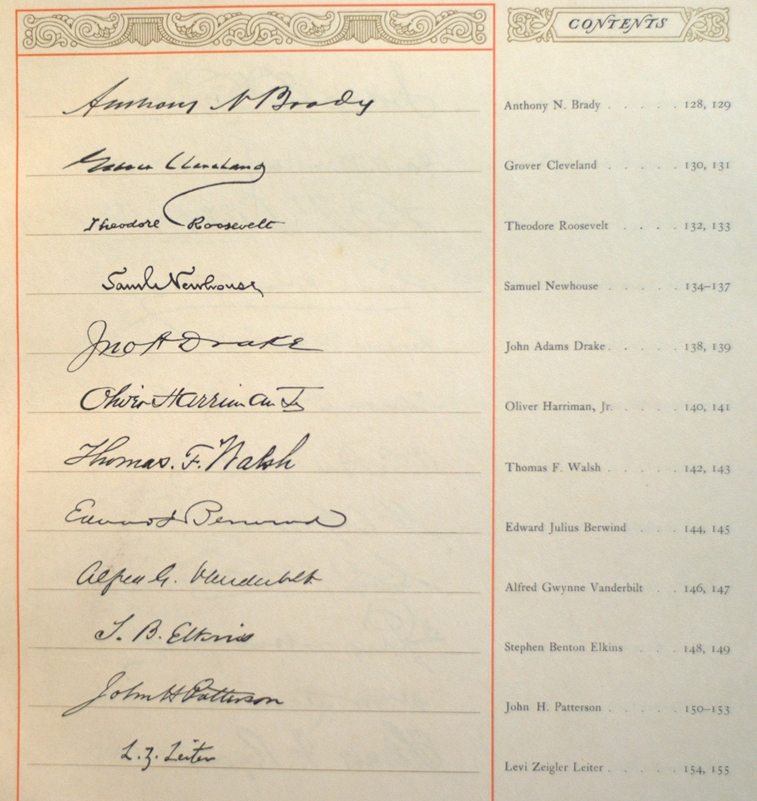 CONTENTS
Anthony N Brady
Anthony N. Brady . . . . . 128, 129
Grover Cleveland
Grover Cleveland . . . . . 130, 131
Theodore Roosevelt
Theodore Roosevelt . . . . 132, 133
Saml Newhouse
Samuel Newhouse . . . . . 134–137
Jno A Drake
John Adams Drake . . . . . 138, 139
Oliver Harriman Jr
Oliver Harriman, Jr. . . . . 140, 141
Thomas. F. Walsh
Thomas F. Walsh . . . . . 142, 143
Edward J Berwind
Edward Julius Berwind . . . 144, 145
Alfred G. Vanderbilt
Alfred Gwynne Vanderbilt . . 146, 147
S. B. Elkins
Stephen Benton Elkins . . . . 148, 149
John H Patterson
John H. Patterson . . . . . 150–153
L. Z. Leiter
Levi Zeigler Leiter . . . . . 154, 155